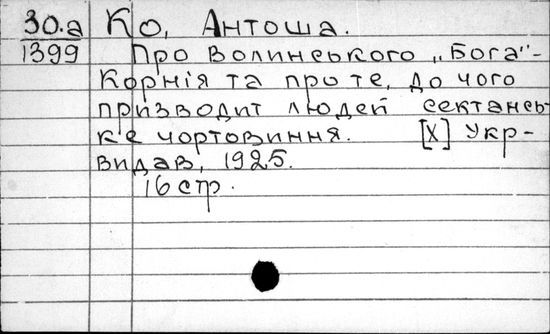 30.а Ко, Антоша.
1399 Про Волинського „Бога"-
Корнія та про те, до чого
призводит людей сектансь-
ке чортовиння. [Х] Укр-
видав, 1925.
16 стр.